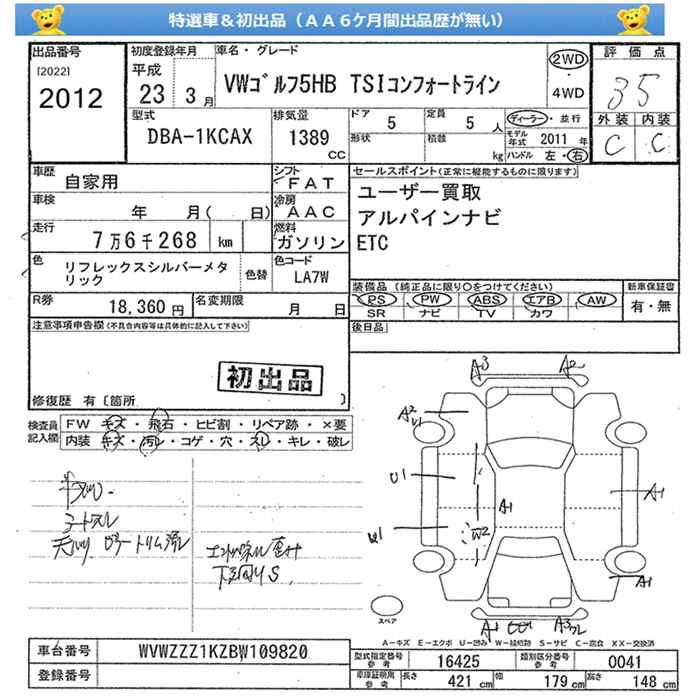 特選車＆初出品（ＡＡ６ケ月間出品歴が無い）
出品番号
[2022]
2012
初度登録年月
平成
23 3月
車名・グレード
VWｺﾞﾙﾌ5HB TSIコンフォートライン
2WD
・
4WD
評価点
35
外装 内装
C C
型式
DBA-1KCAX
排気量
1389
CC
ドア
5
定員
5 人
形状
積数
kg
ディーラー・並行
モデル年式 2011 年
ハンドル 左・右
車歴
自家用
シフト
FAT
車検
年 月( 日)
冷房
AAC
走行
7万6千268 km
燃料
ガソリン
色
リフレックスシルバーメタリック
色替
色コード
LA7W
R券
18,360 円
名変期限
月 日
セールスポイント(正常に機能するものに限ります)
ユーザー買取
アルパインナビ
ETC
装備品 (純正品に限り○をつけてください)
PS PW ABS エアB AW
SR ナビ TV カワ
新車保証書
有・無
後日品
注意事項申告欄(不具合内容等は具体的に記入して下さい)
初出品
修復歴 有〔箇所 〕
検査員
記入欄
FW キズ・飛石・ヒビ割・リペア跡・×要
内装 キズ・汚レ・コゲ・穴・スレ・キレ・破レ
A3 A2
A2
U1
U1
A1
A1
U1
W2
A1
A1
A3
スペア
A－キズ E－エクボ U－凹み W－補修跡 S－サビ C－腐食 XX－交換済
車台番号
WVWZZZ1KZBW109820
登録番号
型式指定番号
参考
16425
類別区分番号
参考
0041
車庫証明用
参考
長さ 421 cm
幅 179 cm
高さ 148 cm